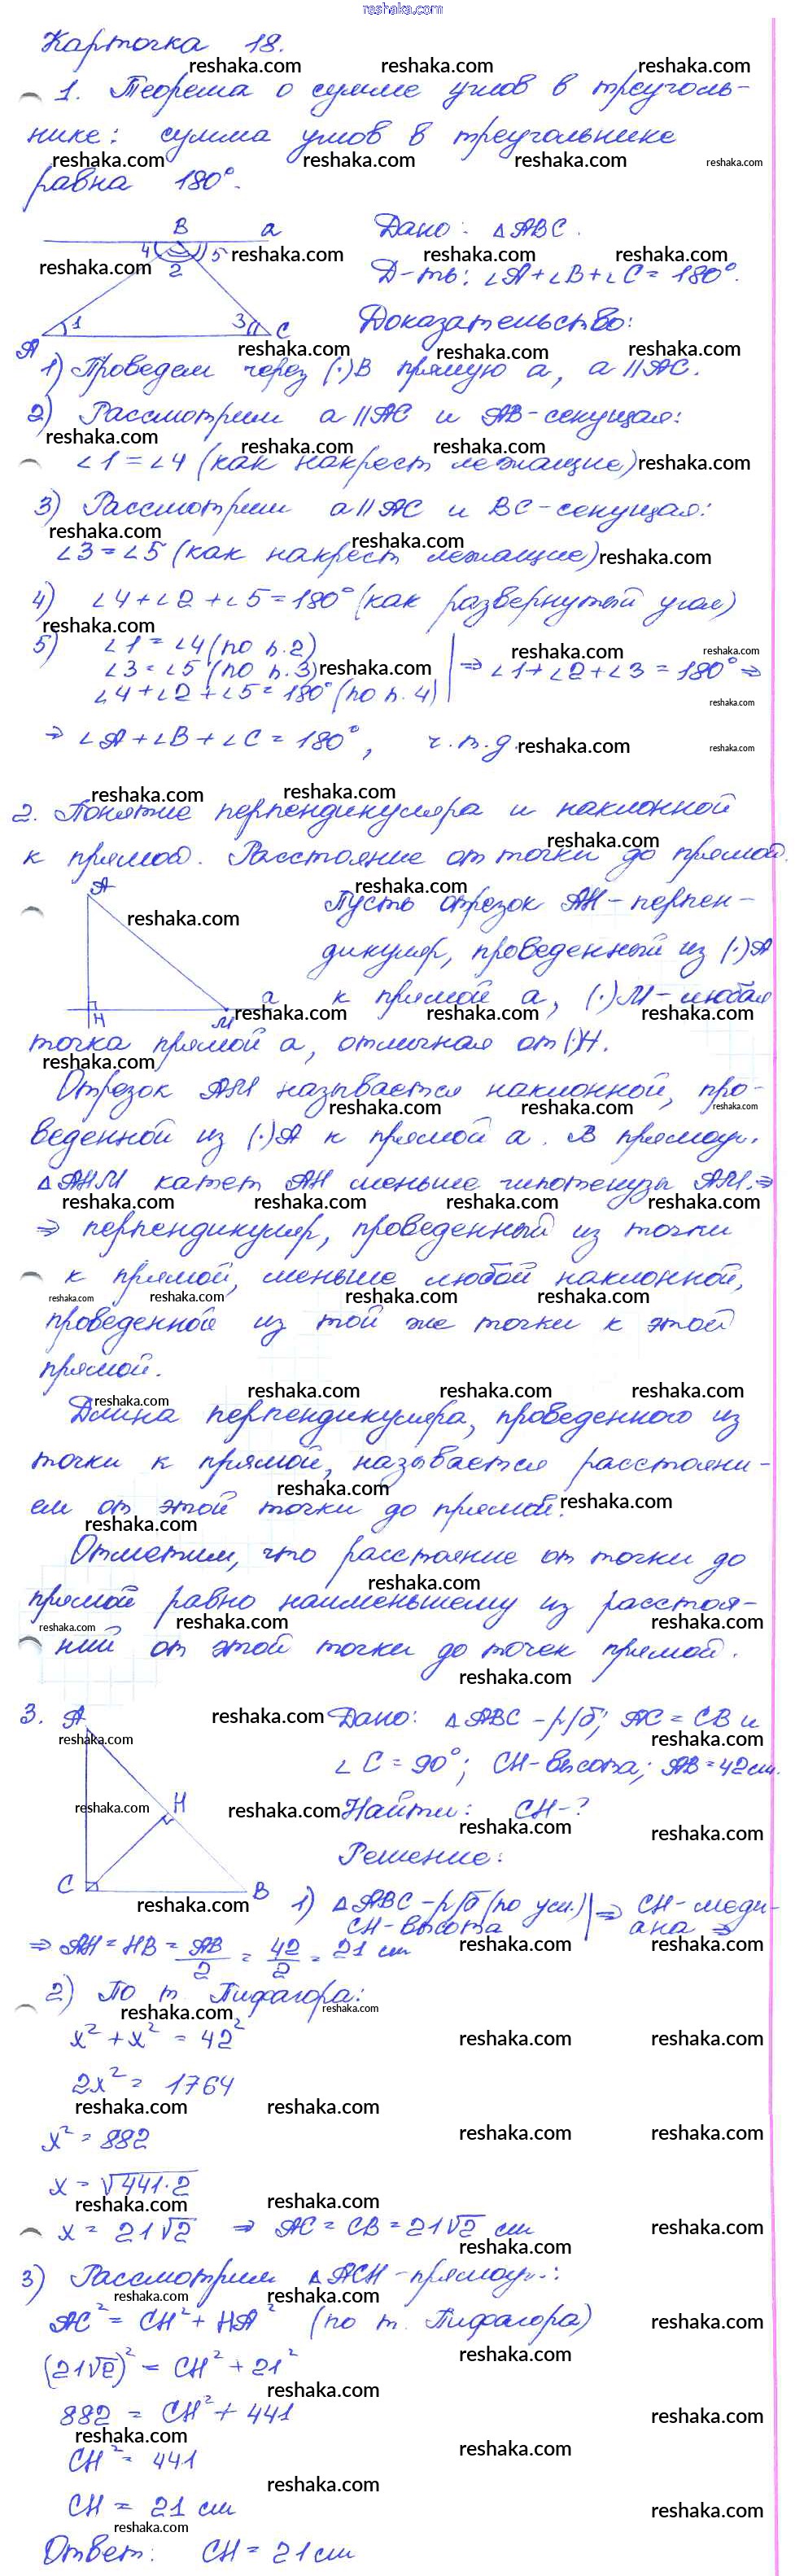 reshaka.com
Карточка 18.
1. Теорема о сумме углов в треуголь-
нике: сумма углов в треугольнике
равна 180°.
B a
4 5
2
1 3
A C
Дано: △ABC.
Д-ть: ∠A+∠B+∠C=180°.
Доказательство:
1) Проведем через (·)B прямую a, a∥AC.
2) Рассмотрим a∥AC и AB-секущая:
∠1=∠4 (как накрест лежащие)
3) Рассмотрим a∥AC и BC-секущая:
∠3=∠5 (как накрест лежащие)
4) ∠4+∠2+∠5=180° (как развернутый угол)
5) ∠1=∠4 (по п.2)
∠3=∠5 (по п.3)
∠4+∠2+∠5=180° (по п.4)
⇒ ∠1+∠2+∠3=180° ⇒
⇒ ∠A+∠B+∠C=180°, ч.т.д.
2. Понятие перпендикуляра и наклонной
к прямой. Расстояние от точки до прямой.
A
H M a
Пусть отрезок AH-перпен-
дикуляр, проведенный из (·)A
к прямой a, (·)M-любая
точка прямой a, отличная от (·)H.
Отрезок AM называется наклонной, про-
веденной из (·)A к прямой a. В прямоуг.
△AHM катет AH меньше гипотенузы AM. ⇒
⇒ перпендикуляр, проведенный из точки
к прямой, меньше любой наклонной,
проведенной из той же точки к этой
прямой.
Длина перпендикуляра, проведенного из
точки к прямой, называется расстояни-
ем от этой точки до прямой.
Отметим, что расстояние от точки до
прямой равно наименьшему из расстоя-
ний от этой точки до точек прямой.
3. A
H
C B
Дано: △ABC-р/б; AC=CB и
∠C=90°; CH-высота; AB=42см.
Найти: CH-?
Решение:
1) △ABC-р/б (по усл.)
CH-высота
⇒ CH-меди-
ана ⇒
⇒ AH=HB=AB/2=42/2=21 см
2) По т. Пифагора:
x²+x²=42²
2x²=1764
x²=882
x=√441·2
x=21√2 ⇒ AC=CB=21√2 см
3) Рассмотрим △ACH-прямоуг.:
AC²=CH²+HA² (по т. Пифагора)
(21√2)²=CH²+21²
882=CH²+441
CH²=441
CH=21 см
Ответ: CH=21см